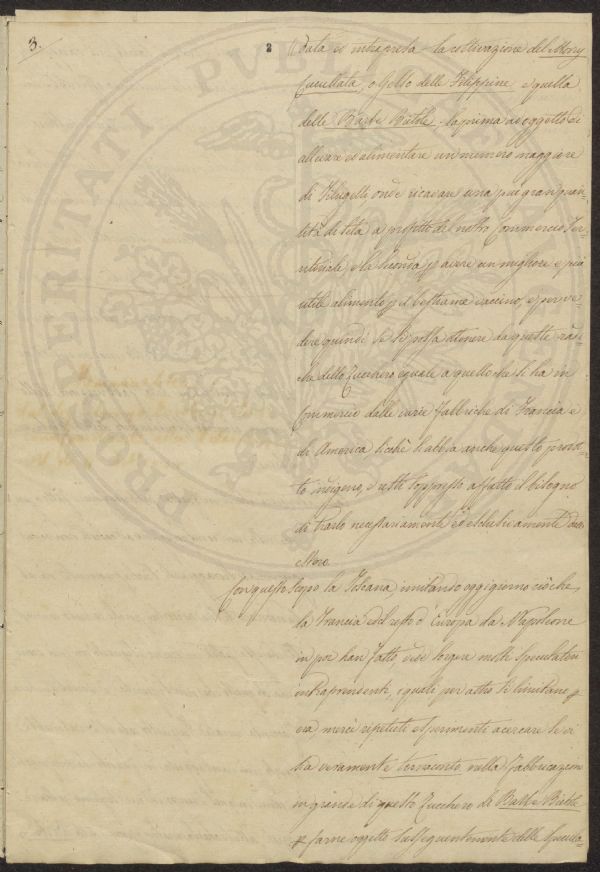 3.
2
data ed intrapresa la coltivazione del Mory
Cucullata, o Gelso delle Filippine e quella
delle Barbe Bietole, la prima ad oggetto di
allevare ed alimentare un numero maggiore
di Filugelli, onde ricavare una più gran quan-
tità di seta a profitto del nostro Commercio Ter-
ritoriale, e la seconda p avere un migliore e più
utile alimento p il bestiame vaccino, e per ve-
dere quindi se si possa ottenere da queste rad-
che dello Zucchero eguale a quello che si ha in
Commercio dalle varie fabbriche di Francia e
di America sichè si abbia anche questo prodot-
to indigeno, e resti soppresso affatto il bisogno
di trarlo necessariamente ed esclusivamente dall'
estero
Con questo scopo la Toscana, imitando oggigiorno ciò che
la Francia ed il resto d'Europa da Napoleone
in poi han fatto, vide sorgere molti speculatori
intraprendenti, i quali per altro si limitano p
ora mercè repetuti esperimenti a cercare se vi
sia veramente tornaconto nella fabbricazione
in grande di questo Zucchero di Barbe Bietole
p farne oggetto susseguentemente delle specula-
PROSPERITATI PVBLICAE